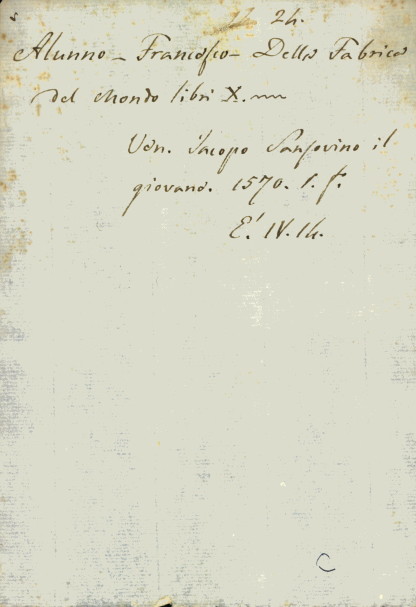 24.
Alunno - Francesco - Della Fabrica
del Mondo libri X.
Ven. Iacopo Sansovino il
giovane. 1570. 1. f.
E. IV. 14.
C